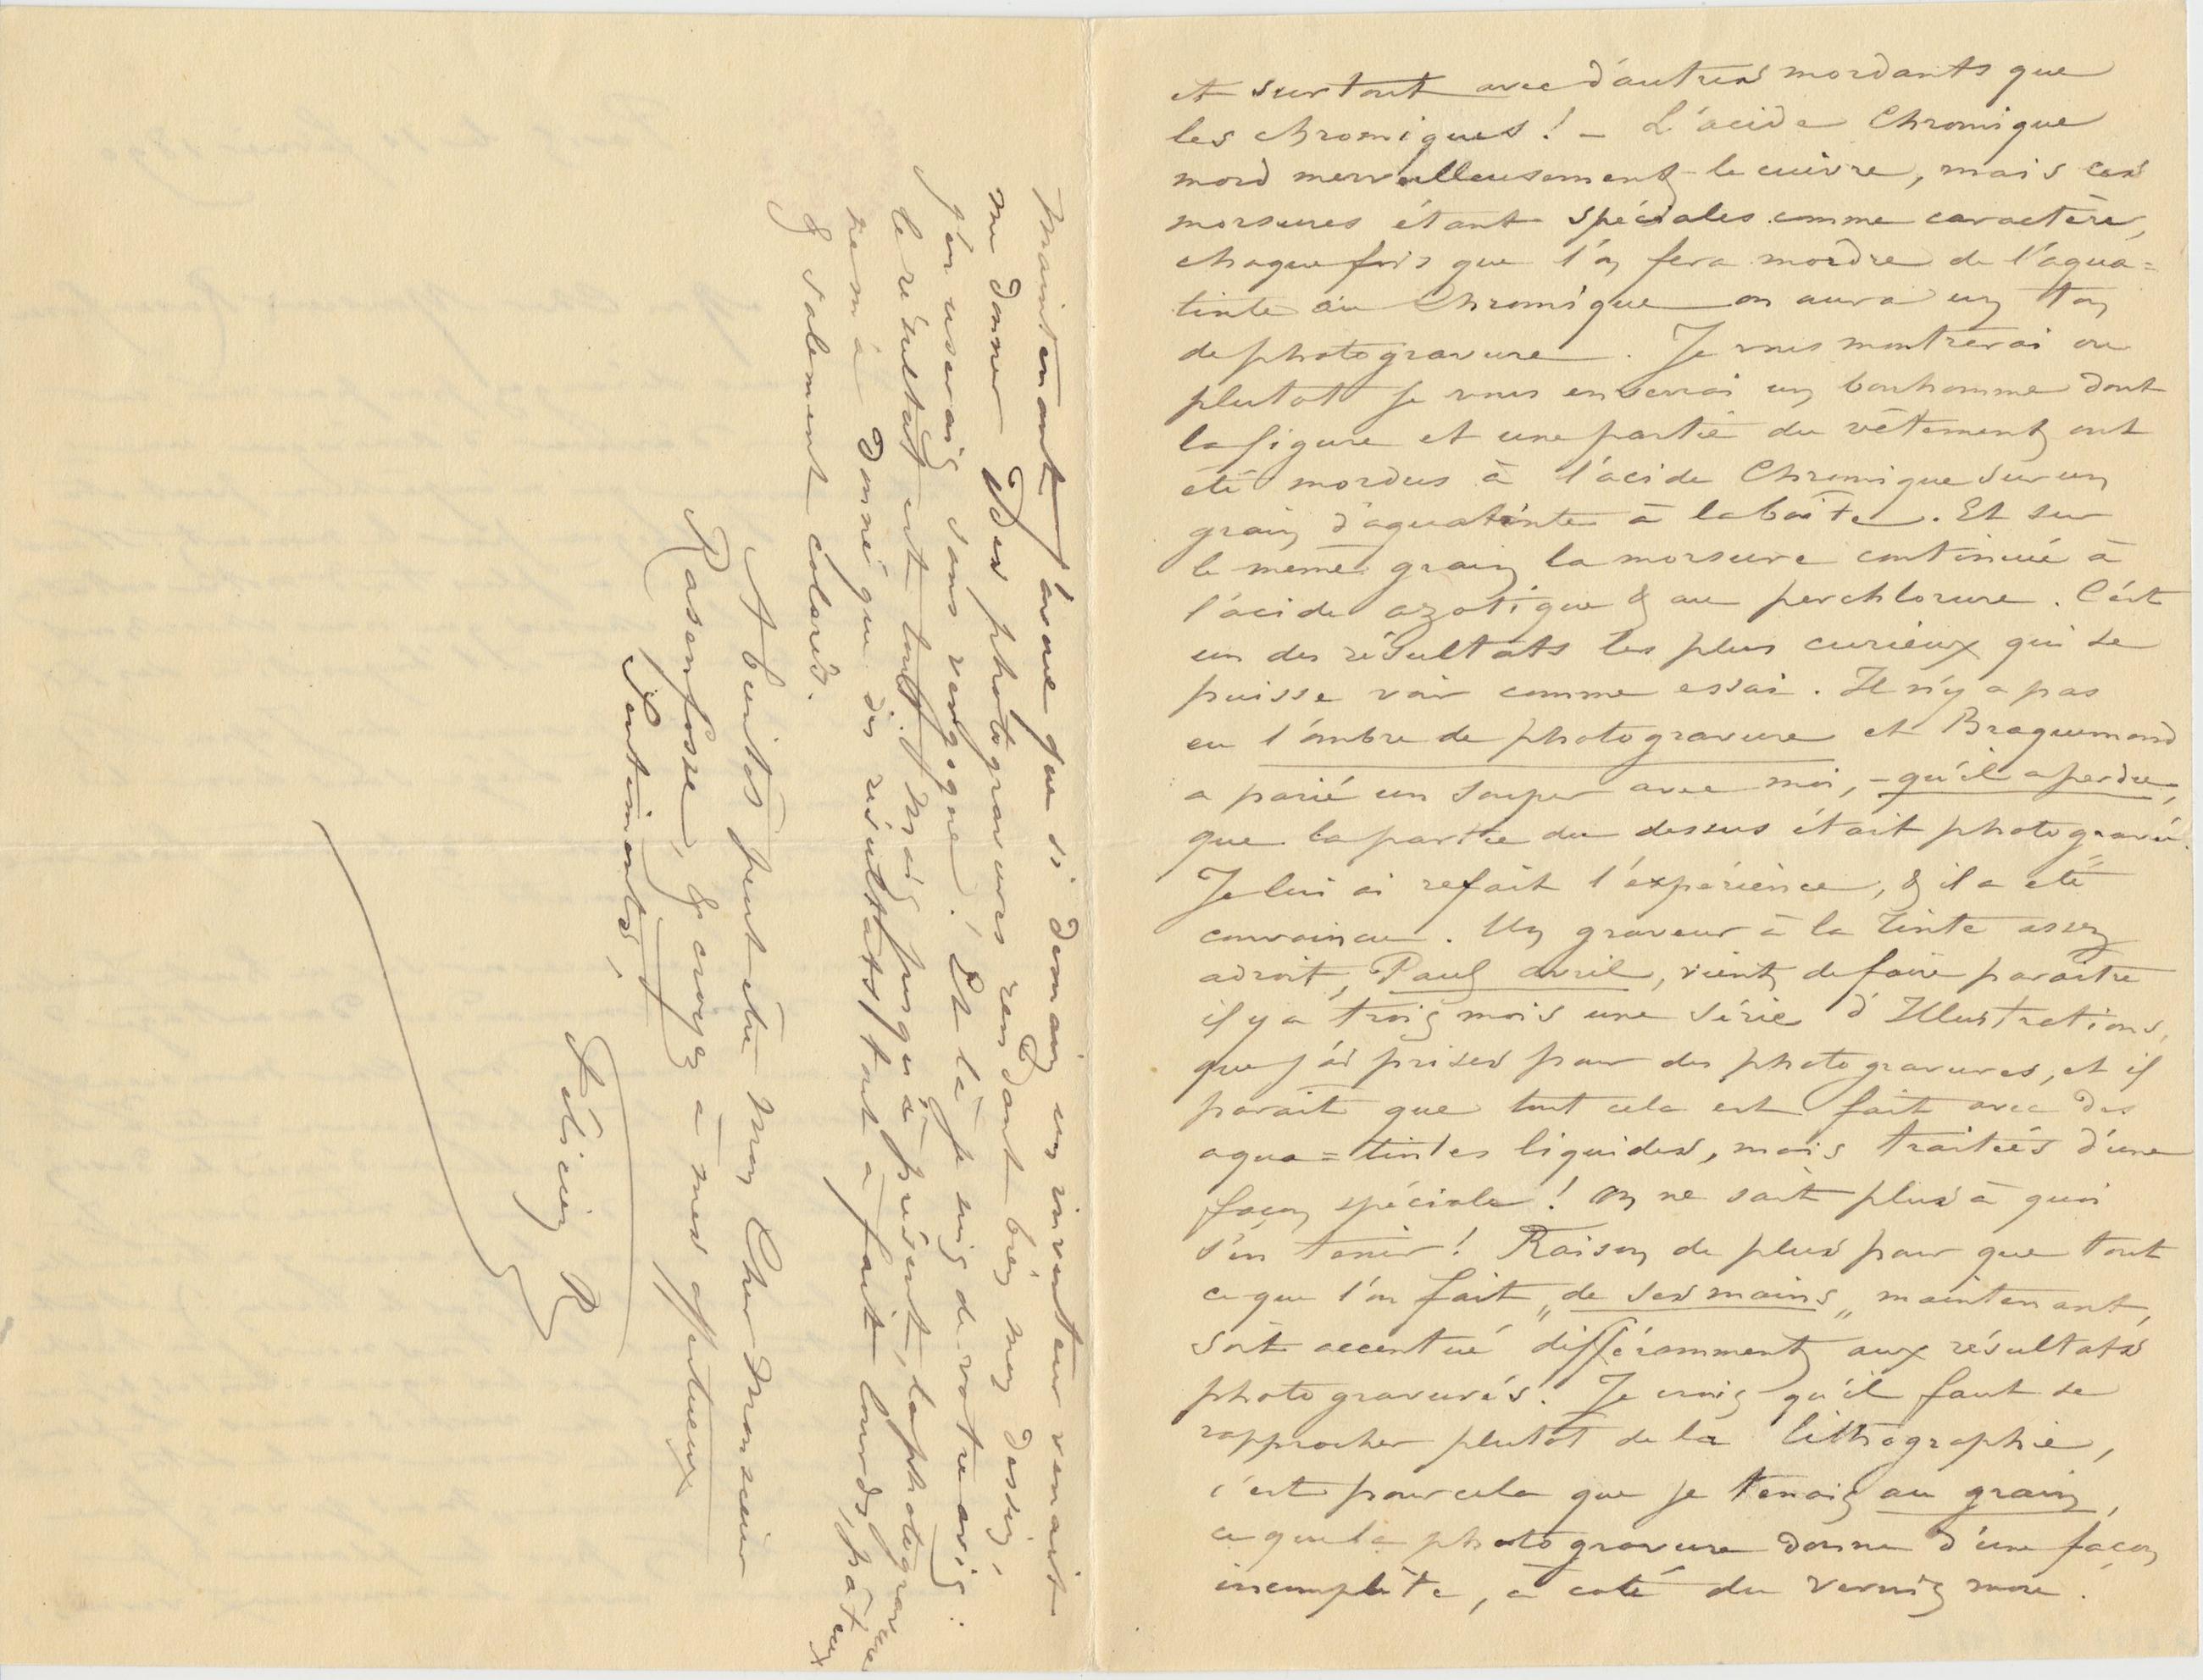 et surtout avec d'autres mordants que
les chromiques ! – L'acide Chromique
mord merveilleusement le cuivre, mais ces
morsures étant spéciales comme caractère,
chaque fois que l'on fera mordre de l'aqua=
tinte au Chromique on aura un ton
de photogravure. Je vous montrerai ou
plutot je vous enverrai un bonhomme dont
la figure et une partie du vêtement ont
été mordus à l'acide Chromique sur un
grain d'aquatinte à la boîte. Et sur
le même grain la morsure continuée à
l'acide azotique & au perchlorure. C'est
un des résultats les plus curieux qui se
puisse voir comme essai. Il n'y a pas
eu l'ombre de photogravure et Braquemond
a parié un souper avec moi, – qu'il a perdu,
que la partie du dessus était photogravée.
Je lui ai refait l'expérience, & il a été
convaincu. Un graveur à la Tinte assez
adroit, Paul avril, vient de faire paraitre
il y a trois mois une série d'Illustrations,
que j'ai prises pour des photogravures, et il
parait que tout cela est fait avec des
aqua=tintes liquides, mais traitées d'une
façon spéciale ! On ne sait plus à quoi
s'en tenir ! Raison de plus pour que tout
ce que l'on fait „de ses mains„ maintenant,
soit accentué différamment aux résultats
photogravurés. Je crois qu'il faut se
rapprocher plutot de la lithographie,
c'est pour cela que je tenais au grain,
ce que la photogravure donne d'une façon
incomplète, à coté du vernis mou.
Maintenant j'avoue que si demain un inventeur venait
me donner Des photogravures rendant bien mon dessin,
j'en userais sans vergogne ! Et là je suis de votre avis :
le résultat est tout ! Mais jusqu'à présent, la photogravure
ne m'a donné que des résultats tout à fait lourds, pâteux
& salement colorés.
A bientôt peut être Mon Cher Monsieur
Rasenfosse, & croyez à mes affectueux
Sentiments,
Félicien R